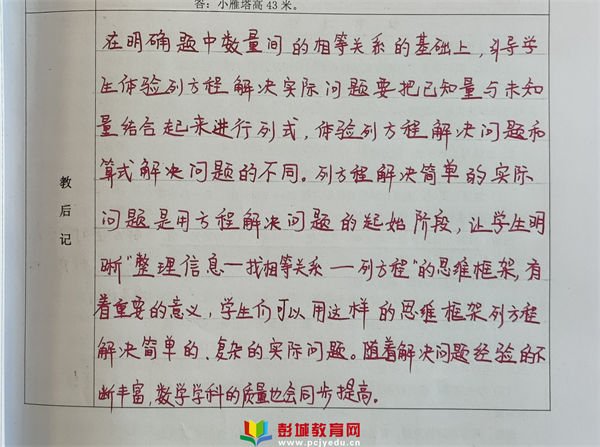 答：小雁塔高43米。
教后记
在明确题中数量间的相等关系的基础上，引导学
生体验列方程解决实际问题要把已知量与未知
量结合起来进行列式，体验列方程解决问题和
算式解决问题的不同。列方程解决简单的实际
问题是用方程解决问题的起始阶段，让学生明
晰“整理信息—找相等关系—列方程”的思维框架，有
着重要的意义，学生们可以用这样的思维框架列方程
解决简单的、复杂的实际问题。随着解决问题经验的不
断丰富，数学学科的质量也会同步提高。
彭城教育网
www.pcjyedu.cn